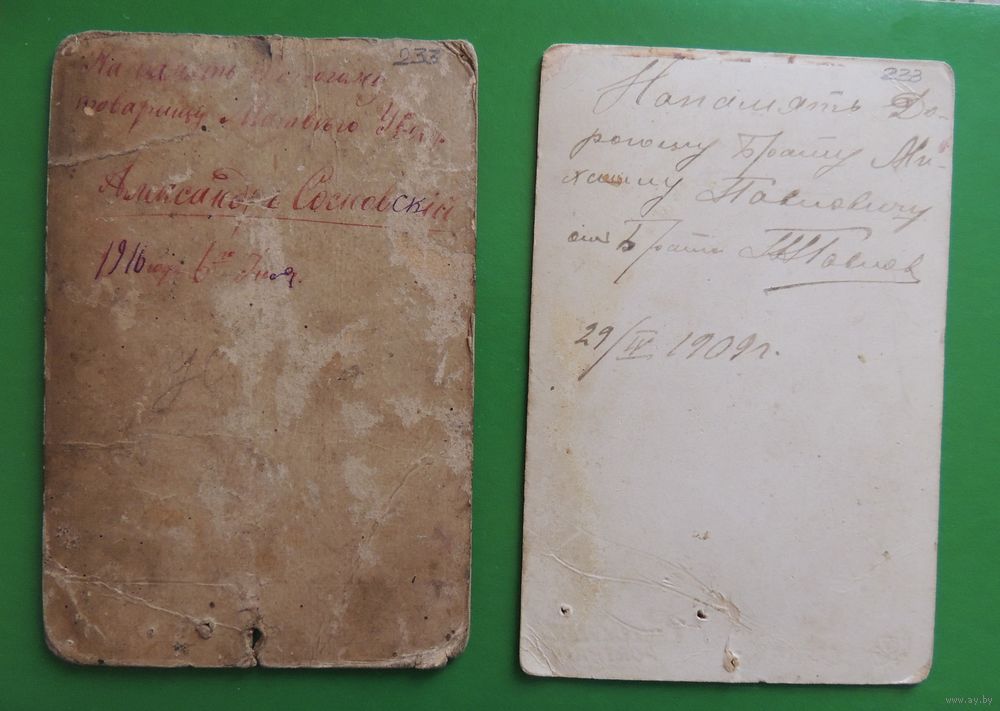 233
На память Дорогому
товарищу
Александръ Сосновскій
1916 году 6го
233
На память До-
рогому Брату Ми-
хаилу Павловичу
отъ Брата Павлов
29/IV 1909 г.
www.ay.by